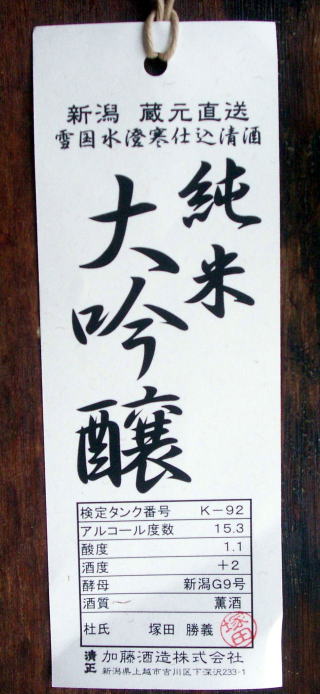 新潟 蔵元直送
雪国水澄寒仕込清酒
純米
大吟醸
検定タンク番号 K-92
アルコール度数 15.3
酸度 1.1
酒度 +2
酵母 新潟G9号
酒質 薫酒
杜氏 塚田 勝義
塚田
清正 加藤酒造株式会社
新潟県上越市吉川区下深沢233-1